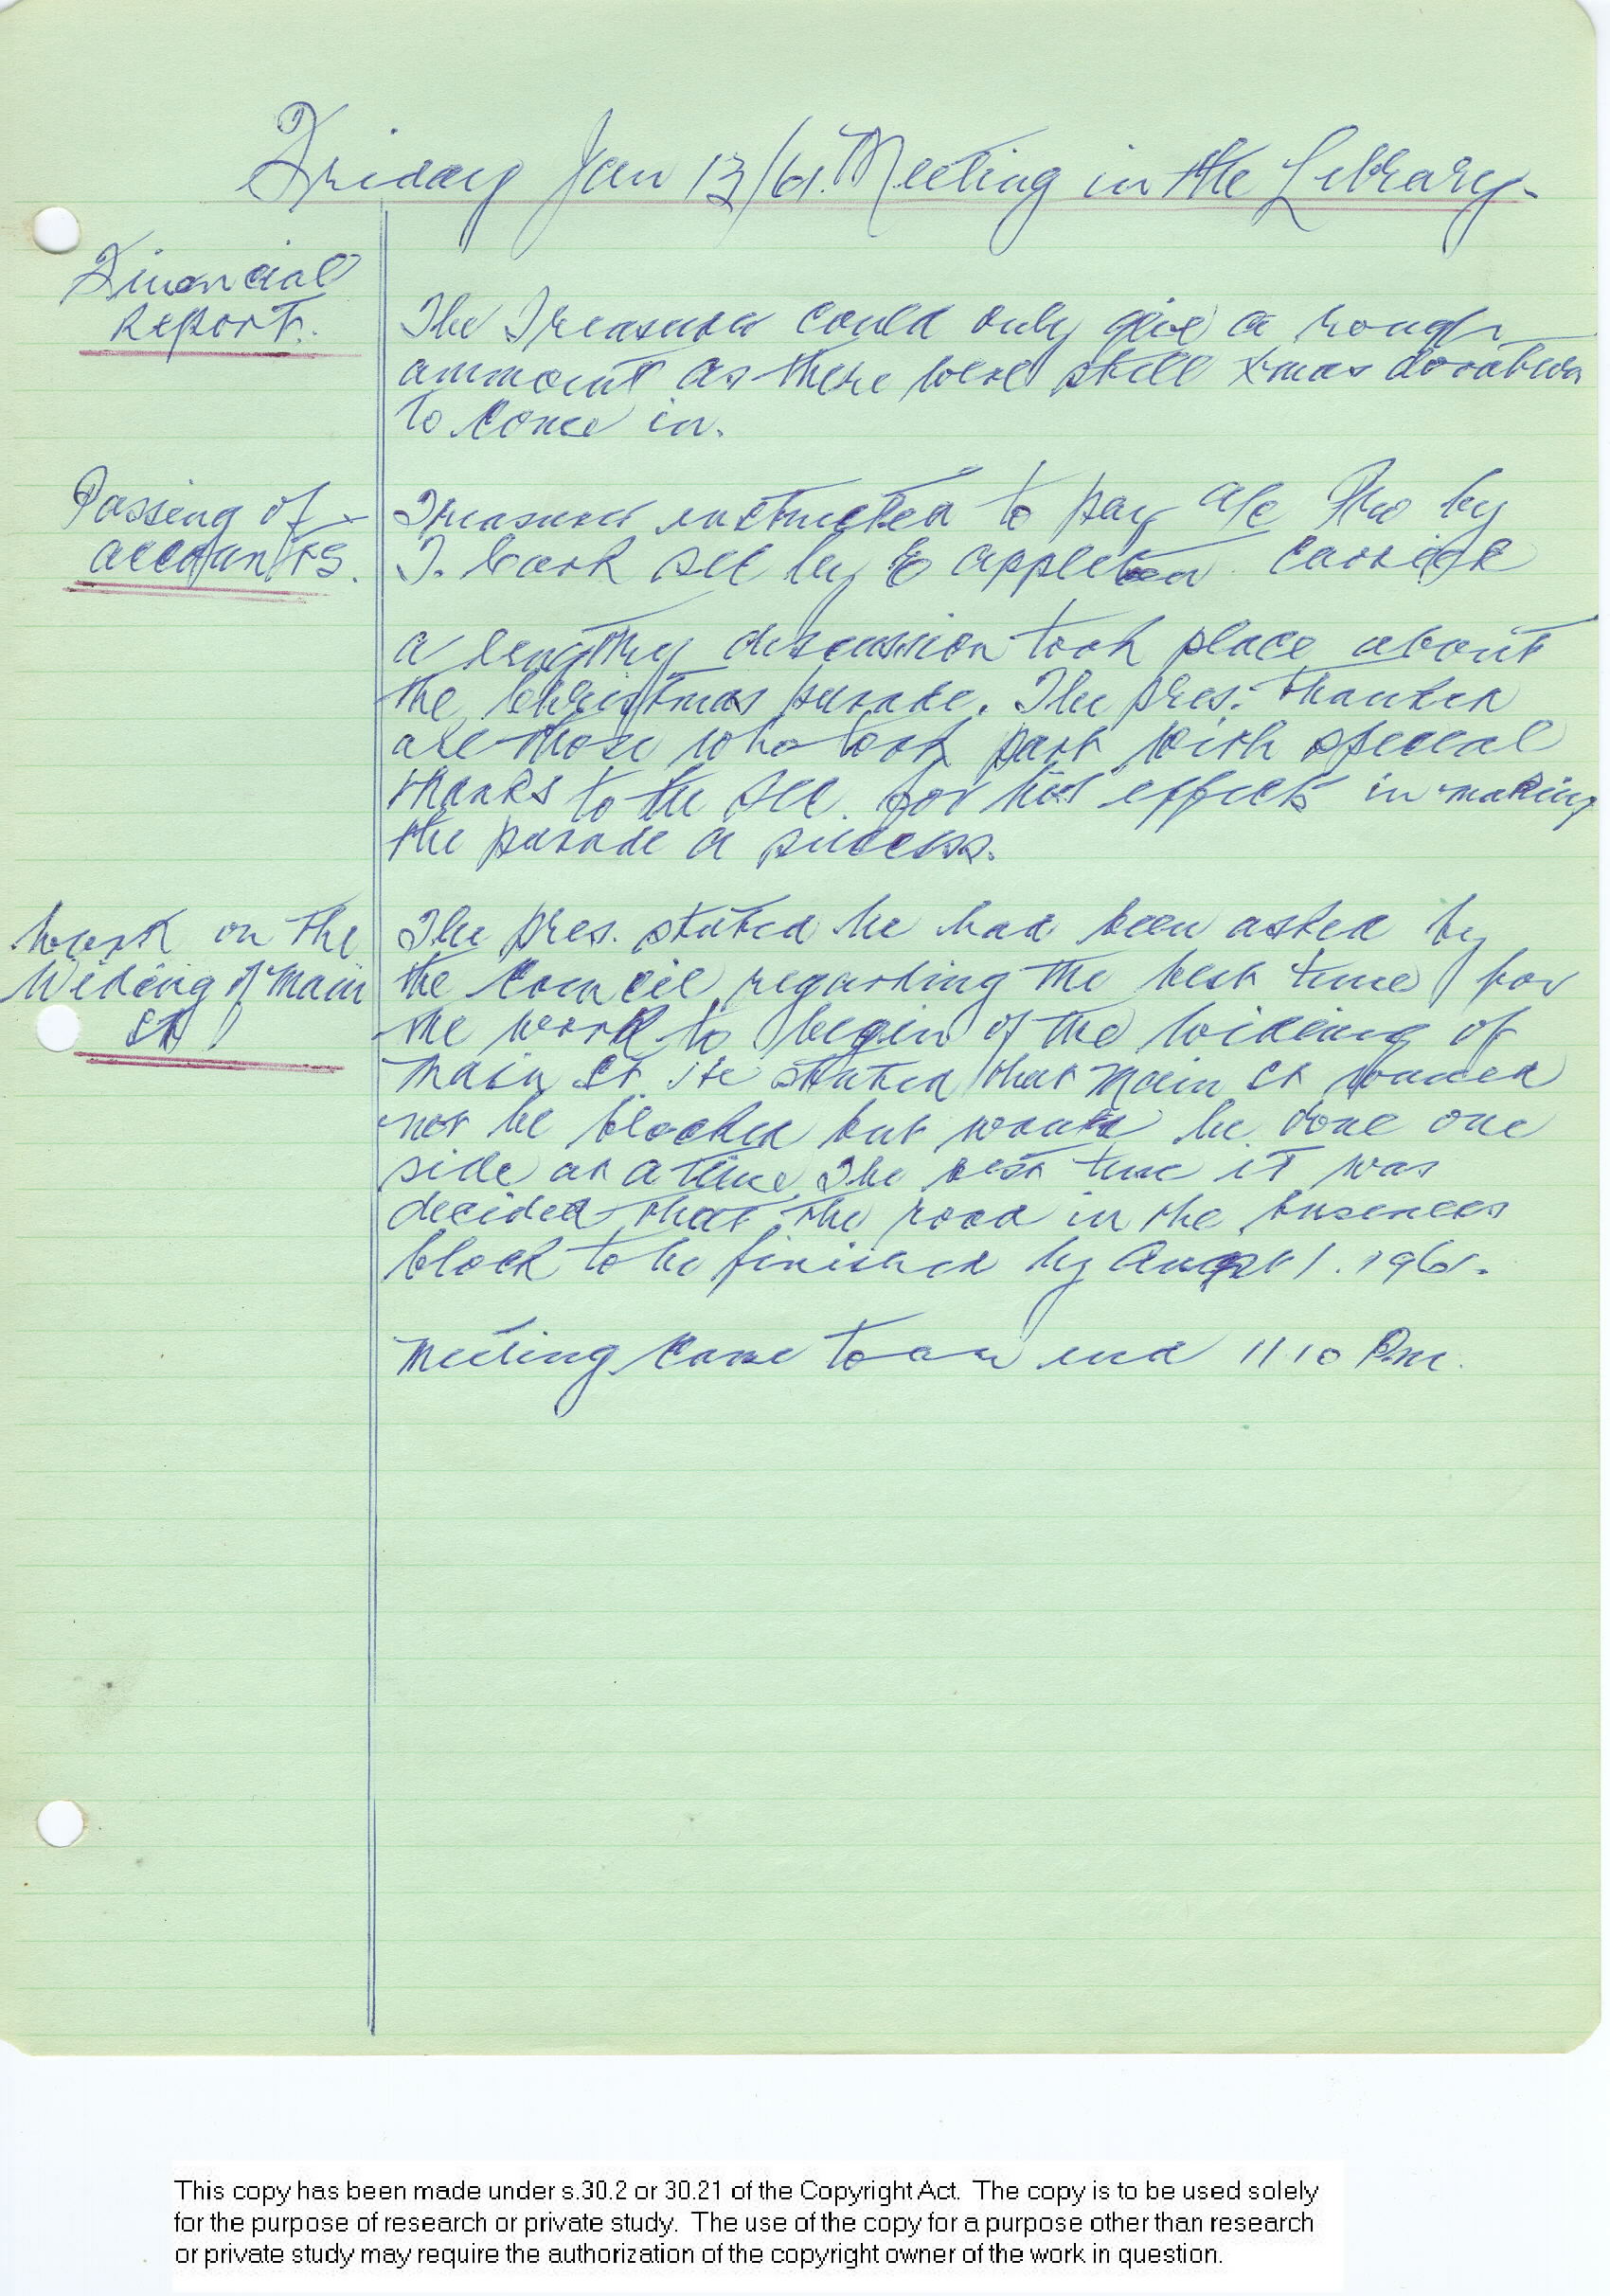 Friday Jan 13/61. Meeting in the Library.
Financial
Report.
The Treasurer could only give a rough
ammount as there were still Xmas donations
to come in.
Passing of
accounts.
Treasurer instructed to pay a/c Pro by
T. Cook Sec by E Appleton Carried
a lengthy discussion took place about
the Christmas parade. The pres. thanked
all those who took part with special
thanks to the Sec. for his effects in making
the parade a success.
Work on the
Widing of Main
St
The pres. stated he had been asked by
the Council regarding the best time for
the work to begin of the wideing of
Main St He stated that Main St would
not be blocked but would be done one
side at a time The best time it was
decided that the road in the business
block to be finished by August 1. 1961.
Meeting came to an end 11 10 P.m.
This copy has been made under s.30.2 or 30.21 of the Copyright Act. The copy is to be used solely
for the purpose of research or private study. The use of the copy for a purpose other than research
or private study may require the authorization of the copyright owner of the work in question.